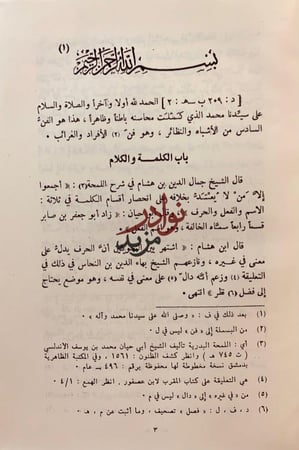 (١)
بسم الله الرحمن الرحيم
[ د : ٢٠٩ ب سه : ٢ ] الحمد لله أولا وآخرا والصلاة والسلام
على سيدنا محمد الذي كملت محاسنه باطناً وظاهراً ، هذا هو الفن
السادس من الأشباه والنظائر ، وهو فن (٢) الأفراد والغرائب .
باب الكلمة والكلام
قال الشيخ جمال الدين بن هشام في شرح اللمحة (٣) : « أجمعوا
إلا من لا يعتد بخلافه انحصار أقسام الكلمة في ثلاثة :
الاسم والفعل والحرف حيان : « زاد أبو جعفر بن صابر
قسماً رابعاً سماه الخالفة
نوادر
مزيد
قال ابن هشام : « اشتهر أن الحرف يدل على
معنى في غيره ، ونازعهم الشيخ بهاء الدين بن النحاس في ذلك في
التعليقة (٤) وزعم أنه دال (٥) على معنى في نفسه ، وهو موضع يحتاج
إلى فضل (٦) نظر » انتهى .
(١) بعد ذلك في ف : « وصلى الله على سيدنا محمد وآله » .
(٢) من البسملة إلى « فن » ليس في ل .
(٣) أي : اللمحة البدرية تأليف الشيخ أبي حيان محمد بن يوسف الأندلسي
( ت ٧٤٥ هـ ) وانظر كشف الظنون : ١٥٦١ ، وفي المكتبة الظاهرية
بدمشق نسخة مخطوطة لها محفوظة برقم : ٤٩٦ ـ عام .
(٤) هي التعليقة على كتاب المقرب لابن عصفور . انظر الهمع : ٤/١
(٥) من « في غيره » إلى « دال » ليس في م .
(٦) د ، ف ، ل : « فصل » تصحيف ، وما أثبت عن م ، هـ .
٣